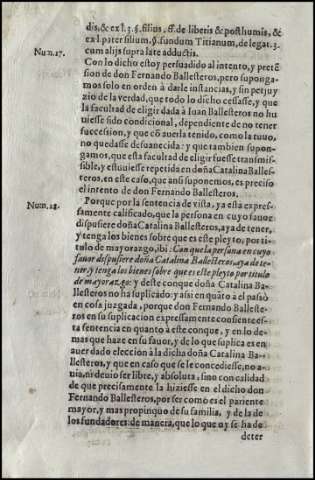 dis, & ex l. 3. §. filius, ff. de liberis & posthumis, &
ex l. pater filium. §. fundum Titianum, de legat. 3.
cum alijs supra late adductis.
Num. 27.
Con lo dicho estoy persuadido al intento, y preten
sion de don Fernando Ballesteros, pero suponga-
mos solo en orden à darle instancias, y sin perjuy
zio de la verdad, que todo lo dicho cessasse, y que
la facultad de eligir dada à Iuan Ballesteros no hu
uiesse sido condicional, dependiente de no tener
succession, y que cõ auerla tenido, como la tuuo,
no quedasse desuanecida: y que tambien supon-
gamos, que esta facultad de eligir fuesse transmis-
sible, y estuuiesse repetida en doña Catalina Balles-
teros, en este caso, que ansi suponemos, es preciso
el intento de don Fernando Ballesteros.
Num. 28.
Porque por la sentencia de vista, ya esta expres-
samente calificado, que la persona en cuyo fauor
dispusiere doña Catalina Ballesteros, aya de tener,
y tenga los bienes sobre que es este pleyto, por ti-
tulo de mayorazgo, ibi: Con que la persona en cuyo
fauor dispusiere doña Catalina Ballesteros, aya de te-
ner, y tenga los bienes sobre que es este pleyto por titulo
de mayorazgo: y deste conque doña Catalina Ba-
llesteros no ha suplicado: y assi en quãto à el passò
en cosa juzgada, porque don Fernando Ballester-
ros en su suplicacion expressamente consiente es-
ta sentencia en quanto à este conque, y en lo de-
mas que haze en su fauor, y de lo que suplica es en
auer dado eleccion à la dicha doña Catalina Ba-
llesteros, y que en caso que se le concediesse, no a-
uia, ni deuiò ser libre, y absoluta, sino con calidad
de que precisamente la hiziesse en el dicho don
Fernando Ballesteros, por ser como es el pariente
mayor, y mas propinquo de su familia, y de la de
los fundadores: de manera, que lo que oy se ha de
deter